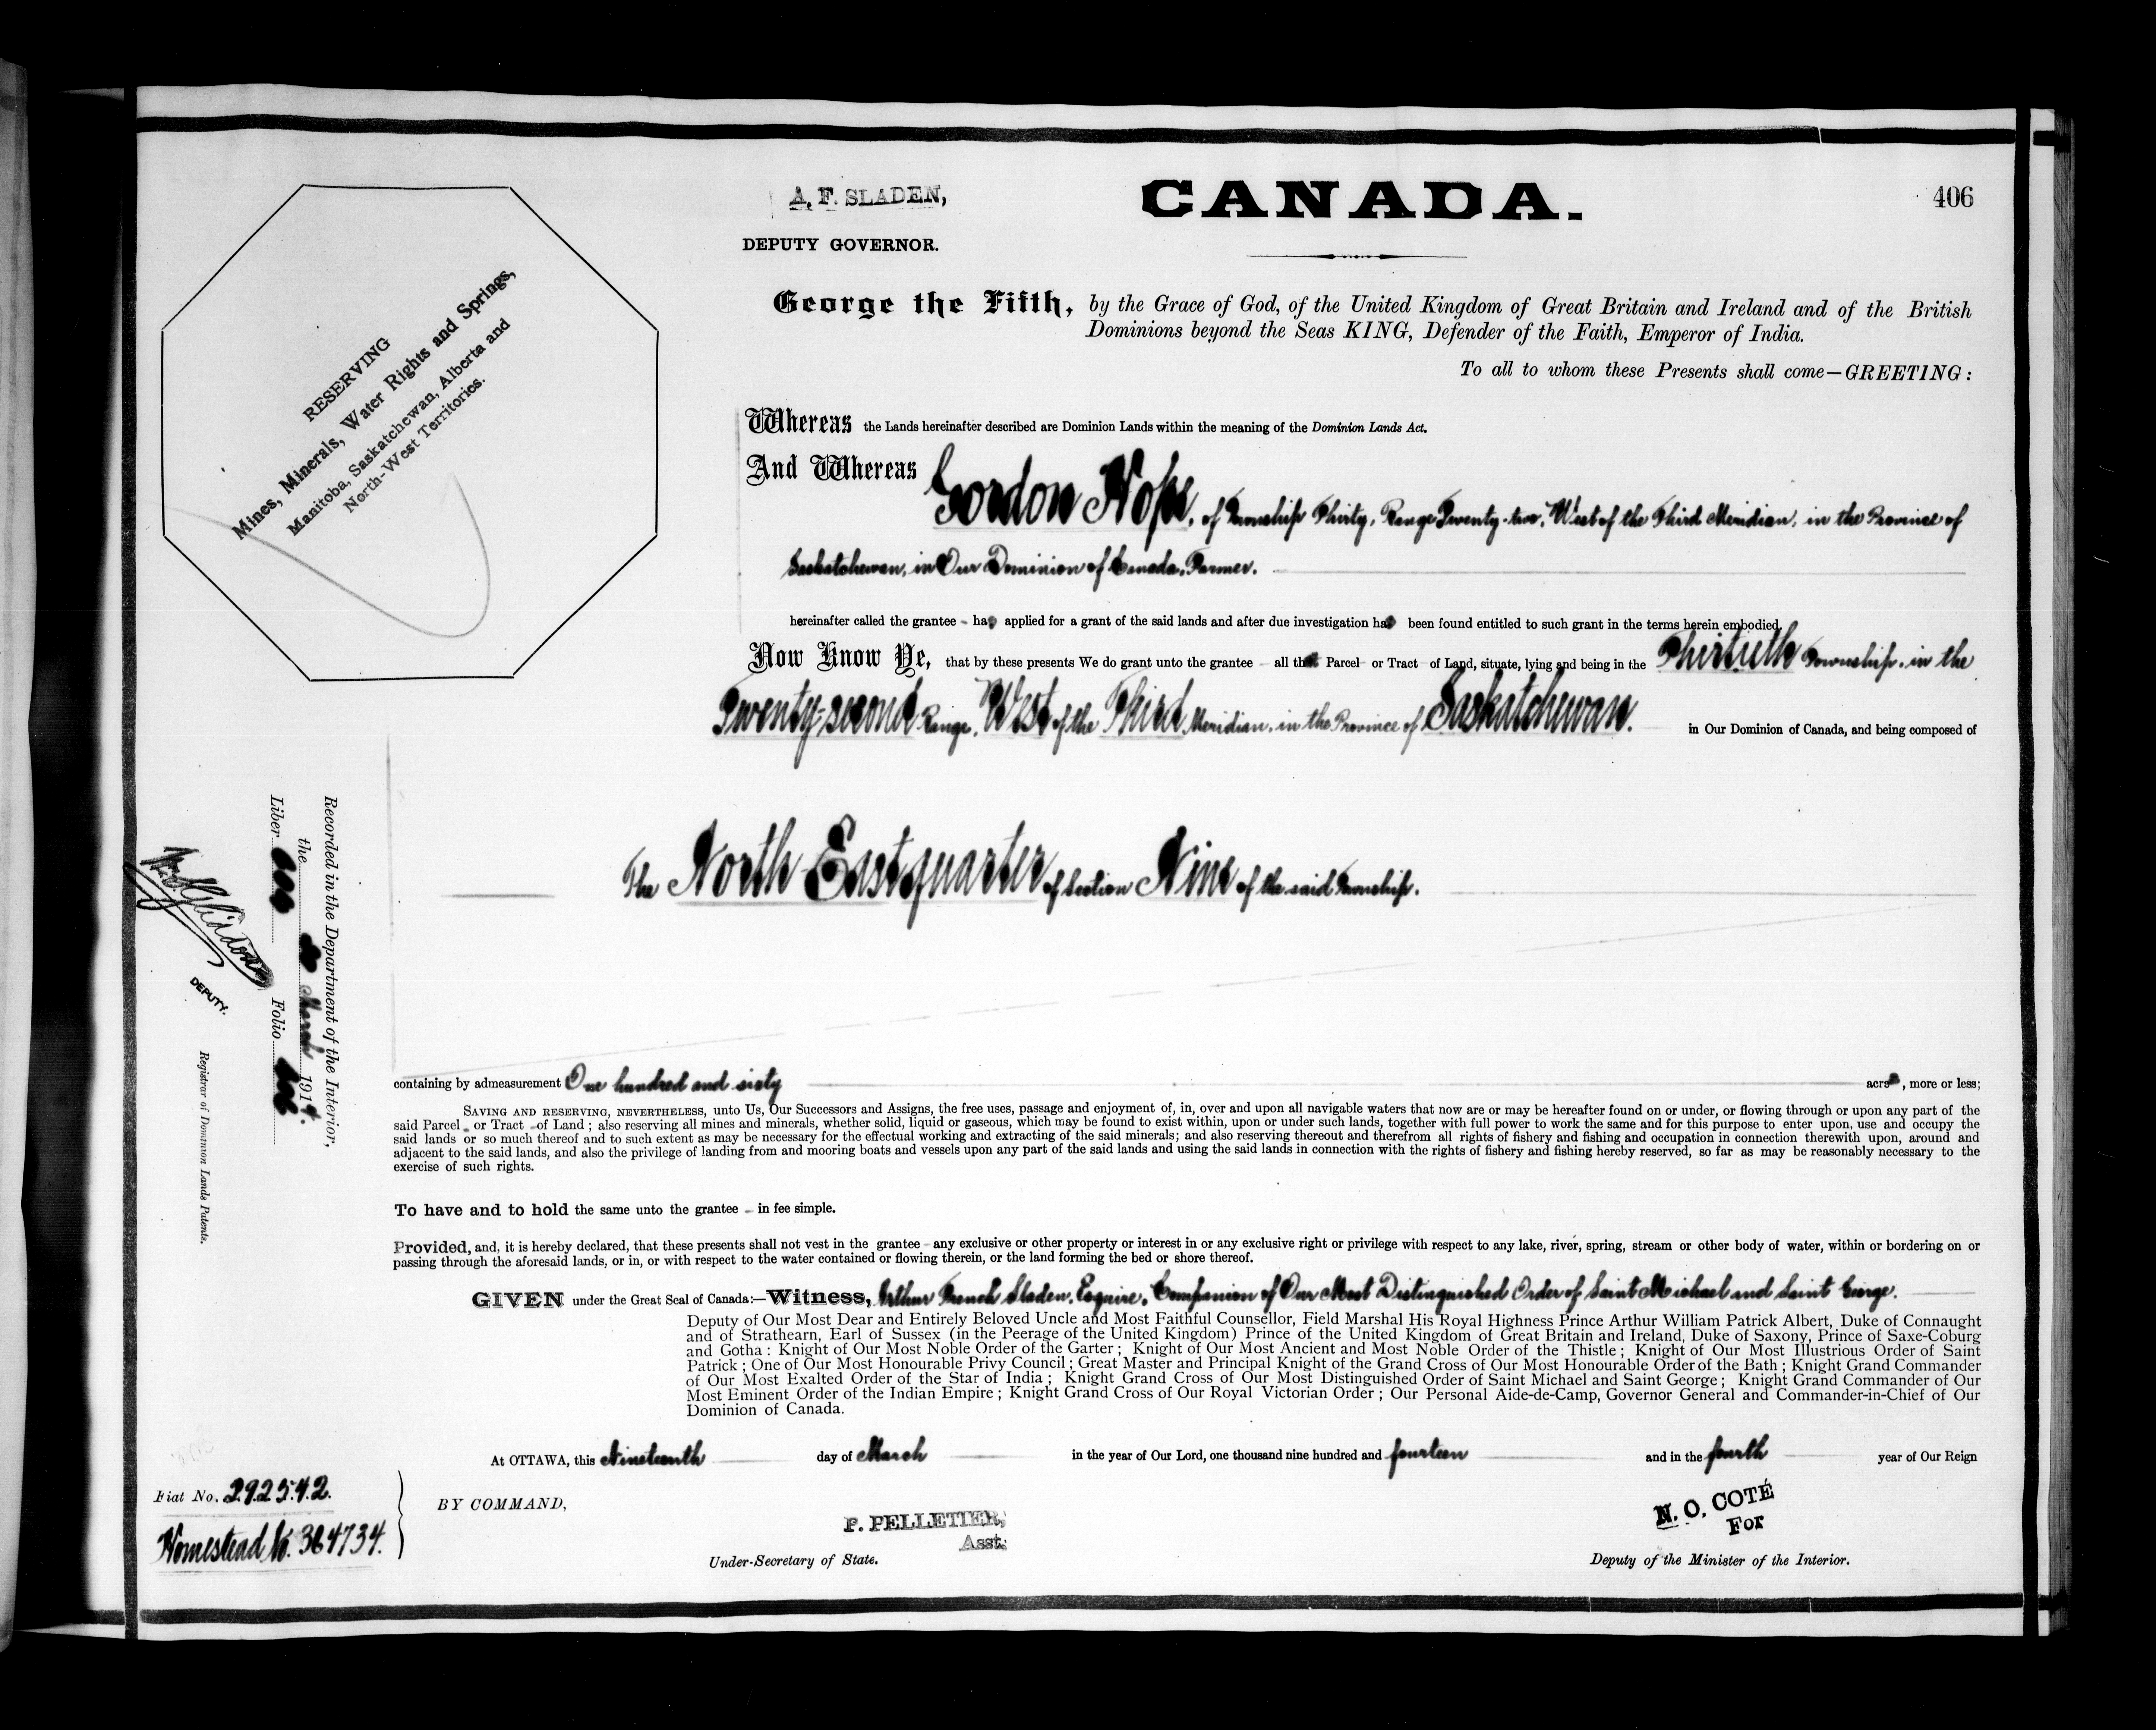 A. F. SLADEN,
DEPUTY GOVERNOR.
CANADA.
406
RESERVING
Mines, Minerals, Water Rights and Springs,
Manitoba, Saskatchewan, Alberta and
North-West Territories.
George the Fifth, by the Grace of God, of the United Kingdom of Great Britain and Ireland and of the British
Dominions beyond the Seas KING, Defender of the Faith, Emperor of India.
To all to whom these Presents shall come—GREETING:
Whereas the Lands hereinafter described are Dominion Lands within the meaning of the Dominion Lands Act.
And Whereas Gordon Hope, of Township Thirty, Range Twenty-two, West of the Third Meridian, in the Province of
Saskatchewan, in Our Dominion of Canada, Farmer.
hereinafter called the grantee - has applied for a grant of the said lands and after due investigation has been found entitled to such grant in the terms herein embodied.
Now Know Ye, that by these presents We do grant unto the grantee - all that Parcel - or Tract - of Land, situate, lying and being in the Thirtieth Township, in the
Twenty-second Range, West of the Third Meridian, in the Province of Saskatchewan. in Our Dominion of Canada, and being composed of
The North East quarter of Section Nine of the said Township.
containing by admeasurement One hundred and sixty acres, more or less;
SAVING AND RESERVING, NEVERTHELESS, unto Us, Our Successors and Assigns, the free uses, passage and enjoyment of, in, over and upon all navigable waters that now are or may be hereafter found on or under, or flowing through or upon any part of the
said Parcel - or Tract - of Land; also reserving all mines and minerals, whether solid, liquid or gaseous, which may be found to exist within, upon or under such lands, together with full power to work the same and for this purpose to enter upon, use and occupy the
said lands or so much thereof and to such extent as may be necessary for the effectual working and extracting of the said minerals; and also reserving thereout and therefrom all rights of fishery and fishing and occupation in connection therewith upon, around and
adjacent to the said lands, and also the privilege of landing from and mooring boats and vessels upon any part of the said lands and using the said lands in connection with the rights of fishery and fishing hereby reserved, so far as may be reasonably necessary to the
exercise of such rights.
To have and to hold the same unto the grantee - in fee simple.
Provided, and, it is hereby declared, that these presents shall not vest in the grantee - any exclusive or other property or interest in or any exclusive right or privilege with respect to any lake, river, spring, stream or other body of water, within or bordering on or
passing through the aforesaid lands, or in, or with respect to the water contained or flowing therein, or the land forming the bed or shore thereof.
GIVEN under the Great Seal of Canada:—Witness, Arthur French Sladen, Esquire, Companion of Our Most Distinguished Order of Saint Michael and Saint George.
Deputy of Our Most Dear and Entirely Beloved Uncle and Most Faithful Counsellor, Field Marshal His Royal Highness Prince Arthur William Patrick Albert, Duke of Connaught
and of Strathearn, Earl of Sussex (in the Peerage of the United Kingdom) Prince of the United Kingdom of Great Britain and Ireland, Duke of Saxony, Prince of Saxe-Coburg
and Gotha: Knight of Our Most Noble Order of the Garter; Knight of Our Most Ancient and Most Noble Order of the Thistle; Knight of Our Most Illustrious Order of Saint
Patrick; One of Our Most Honourable Privy Council; Great Master and Principal Knight of the Grand Cross of Our Most Honourable Order of the Bath; Knight Grand Commander
of Our Most Exalted Order of the Star of India; Knight Grand Cross of Our Most Distinguished Order of Saint Michael and Saint George; Knight Grand Commander of Our
Most Eminent Order of the Indian Empire; Knight Grand Cross of Our Royal Victorian Order; Our Personal Aide-de-Camp, Governor General and Commander-in-Chief of Our
Dominion of Canada.
At OTTAWA, this Nineteenth day of March in the year of Our Lord, one thousand nine hundred and fourteen and in the fourth year of Our Reign
BY COMMAND,
P. PELLETIER,
Asst.
Under-Secretary of State.
N. O. COTÉ
For
Deputy of the Minister of the Interior.
Recorded in the Department of the Interior,
the March 1914.
Liber Folio 406
DEPUTY.
Registrar of Dominion Lands Patents.
Fiat No. 292542.
Homestead No. 364734.